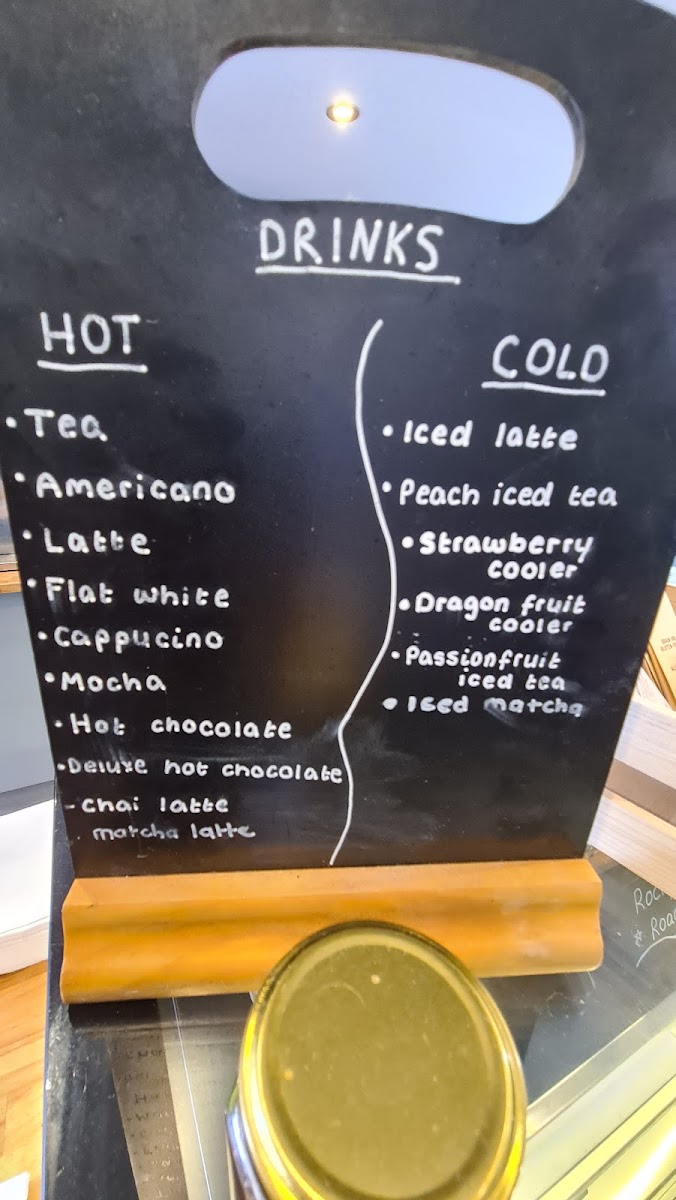 DRINKS
HOT
• Tea
• Americano
• Latte
• Flat white
• Cappucino
• Mocha
• Hot chocolate
• Deluxe hot chocolate
- Chai latte
matcha latte
COLD
• Iced latte
• Peach iced tea
• Strawberry
cooler
• Dragon fruit
cooler
• Passionfruit
iced tea
• Iced matcha